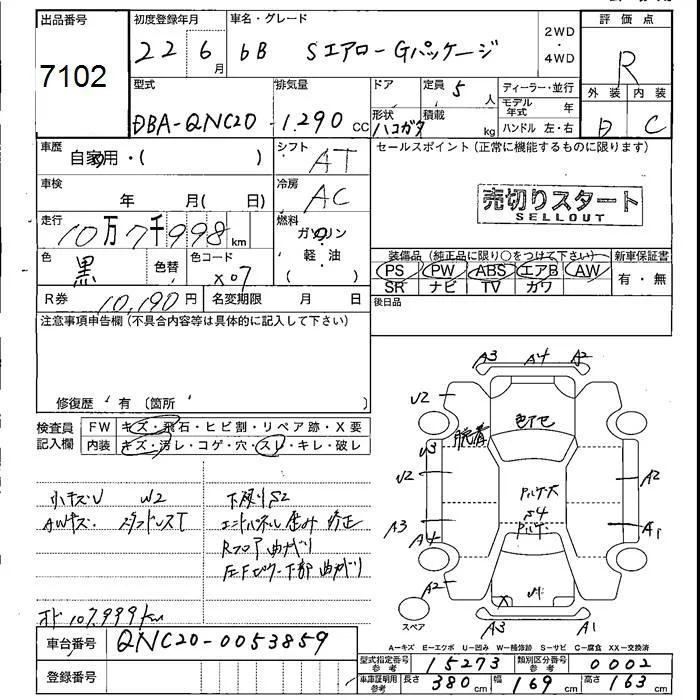 出品番号 初度登録年月 車名・グレード 評価点
7102
22 6月 bB Sエアロ-Gパッケージ 2WD・4WD R
型式 排気量 ドア 定員 5人 ディーラー・並行 外装 内装
DBA-QNC20 -1.290 cc 形状 ハコガタ 積載 kg モデル年式 年 ハンドル 左・右 D C
車歴 自家用・( ) シフト AT セールスポイント(正常に機能するものに限ります)
車検 年 月( 日) 冷房 AC
売切りスタート
SELLOUT
走行 10万7千998km 燃料 ガソリン
軽・油
( )
色 黒 色替 色コード X07
装備品(純正品に限り○をつけて下さい) 新車保証書
PS PW ABS エアB AW 有・無
SR ナビ TV カワ
R券 10,190円 名変期限 月 日 後日品
注意事項申告欄(不具合内容等は具体的に記入して下さい)
修復歴 有 (箇所
検査員記入欄 FW キズ・飛石・ヒビ割・リペア跡・X要
内装 キズ・汚レ・コゲ・穴・スレ・キレ・破レ
小キズU W2 下廻りS2
AWキズ スタッドレスT エンドパネル歪み修正
Rフロア曲がり
左Fピラー下部曲がり
オド 107,999km
A3 A4 A2
U2
脱着 色アセ
U3
U2 A2
S4
A3 A1
A4
A2
X
スペア A3 A1
A−キズ E−エクボ U−凹み W−補修跡 S−サビ C−腐食 XX−交換済
車台番号 QNC20-0053859
登録番号
型式指定番号 参考 15273 類別区分番号 参考 0002
車庫証明用 参考 長さ 380cm 幅 169cm 高さ 163cm